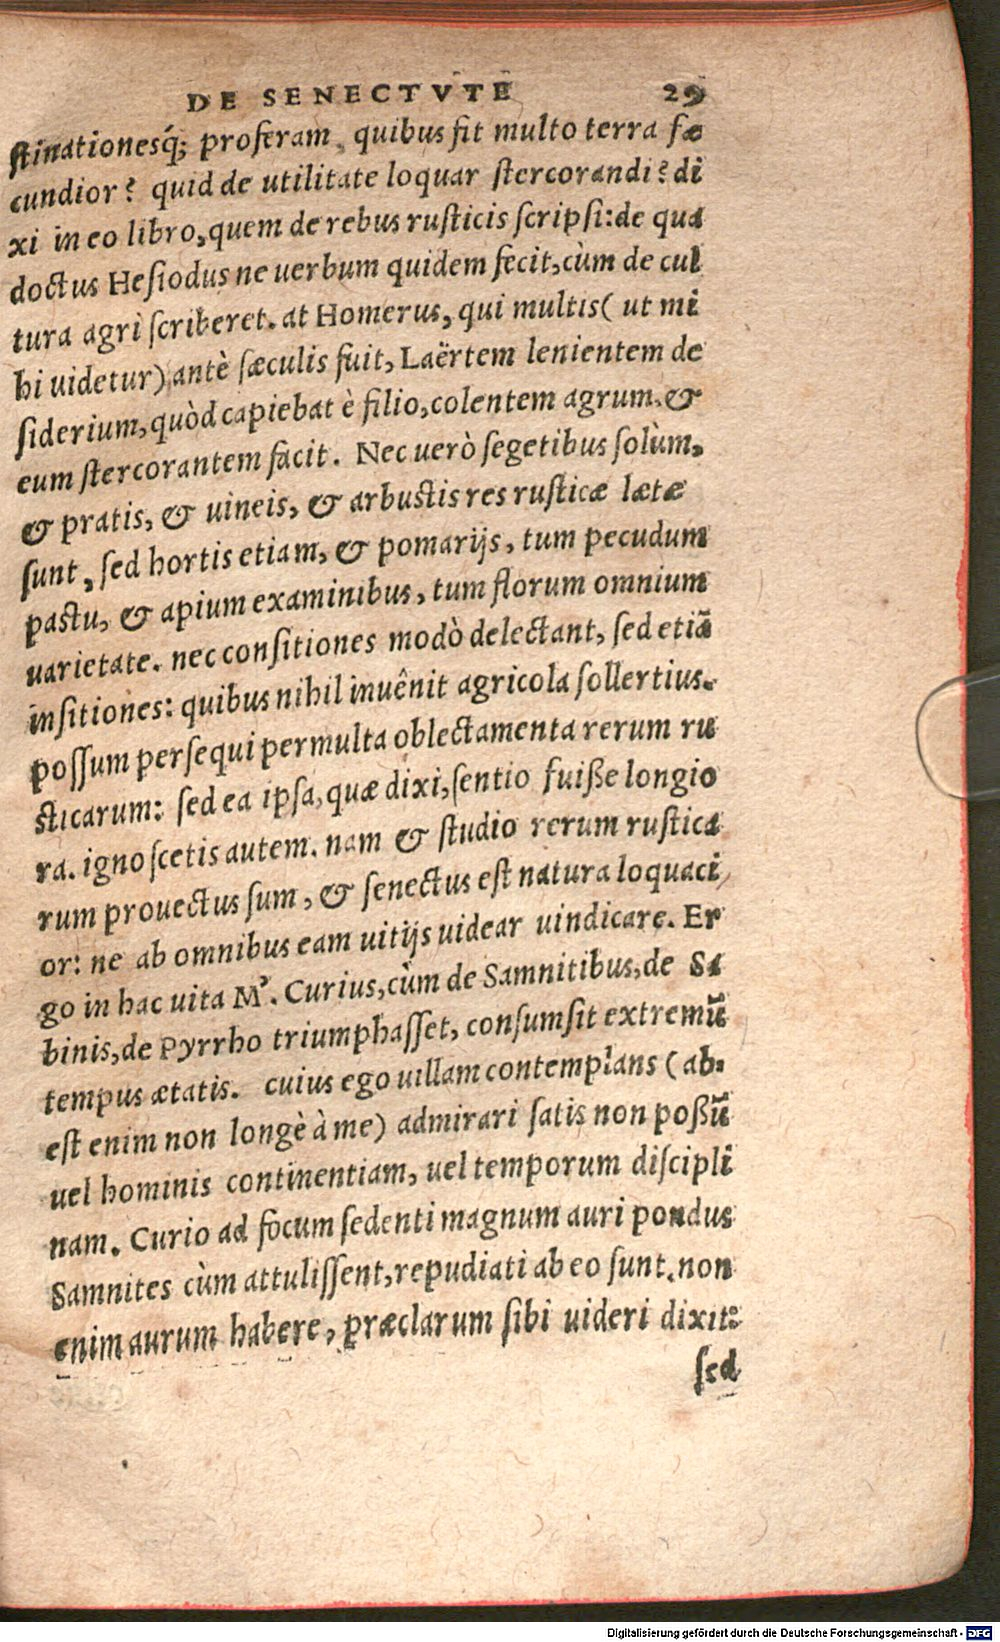 DE SENECTVTE 29
ſtinationesq́; proferam, quibus fit multo terra fæ
cundior? quid de utilitate loquar ſtercorandi? di
xi in eo libro, quem de rebus ruſticis ſcripſi: de qua
doctus Heſiodus ne uerbum quidem fecit, cùm de cul
tura agri ſcriberet. at Homerus, qui multis( ut mi
hi uidetur) antè ſæculis fuit, Laërtem lenientem de
ſiderium, quòd capiebat è filio, colentem agrum, &
eum ſtercorantem facit. Nec uerò ſegetibus ſolùm,
& pratis, & uineis, & arbuſtis res ruſticæ lætæ
ſunt, ſed hortis etiam, & pomarijs, tum pecudum
paſtu, & apium examinibus, tum florum omnium
uarietate. nec conſitiones modò delectant, ſed etiã
inſitiones: quibus nihil inuênit agricola ſollertius.
poſſum perſequi permulta oblectamenta rerum ru
ſticarum: ſed ea ipſa, quæ dixi, ſentio fuiße longio
ra. ignoſcetis autem. nam & ſtudio rerum ruſtica
rum prouectus ſum, & ſenectus eſt natura loquaci
or: ne ab omnibus eam uitijs uidear uindicare. Er
go in hac uita M'. Curius, cùm de Samnitibus, de Sa
binis, de Pyrrho triumphaſſet, conſumſit extremũ
tempus ætatis. cuius ego uillam contemplans ( ab-
eſt enim non longè à me) admirari ſatis non poßũ
uel hominis continentiam, uel temporum diſcipli
nam. Curio ad focum ſedenti magnum auri pondus
Samnites cùm attuliſſent, repudiati ab eo ſunt. non
enim aurum habere, præclarum ſibi uideri dixit:
ſed
Digitalisierung gefördert durch die Deutsche Forschungsgemeinschaft - DFG